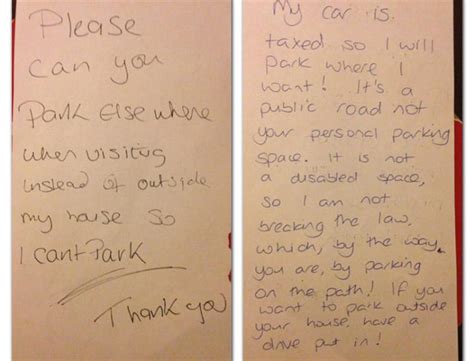 Please
can you
Park Else where
when visiting
instead of outside
my house so
I cant Park
Thank you
My car is
taxed so I will
park where I
want! It's a
public road not
your personal parking
space. It is not
a disabled space,
so I am not
breaking the law.
which, by the way
you are, by parking
on the path! If you
want to park outside
your house, have a
drive put in!